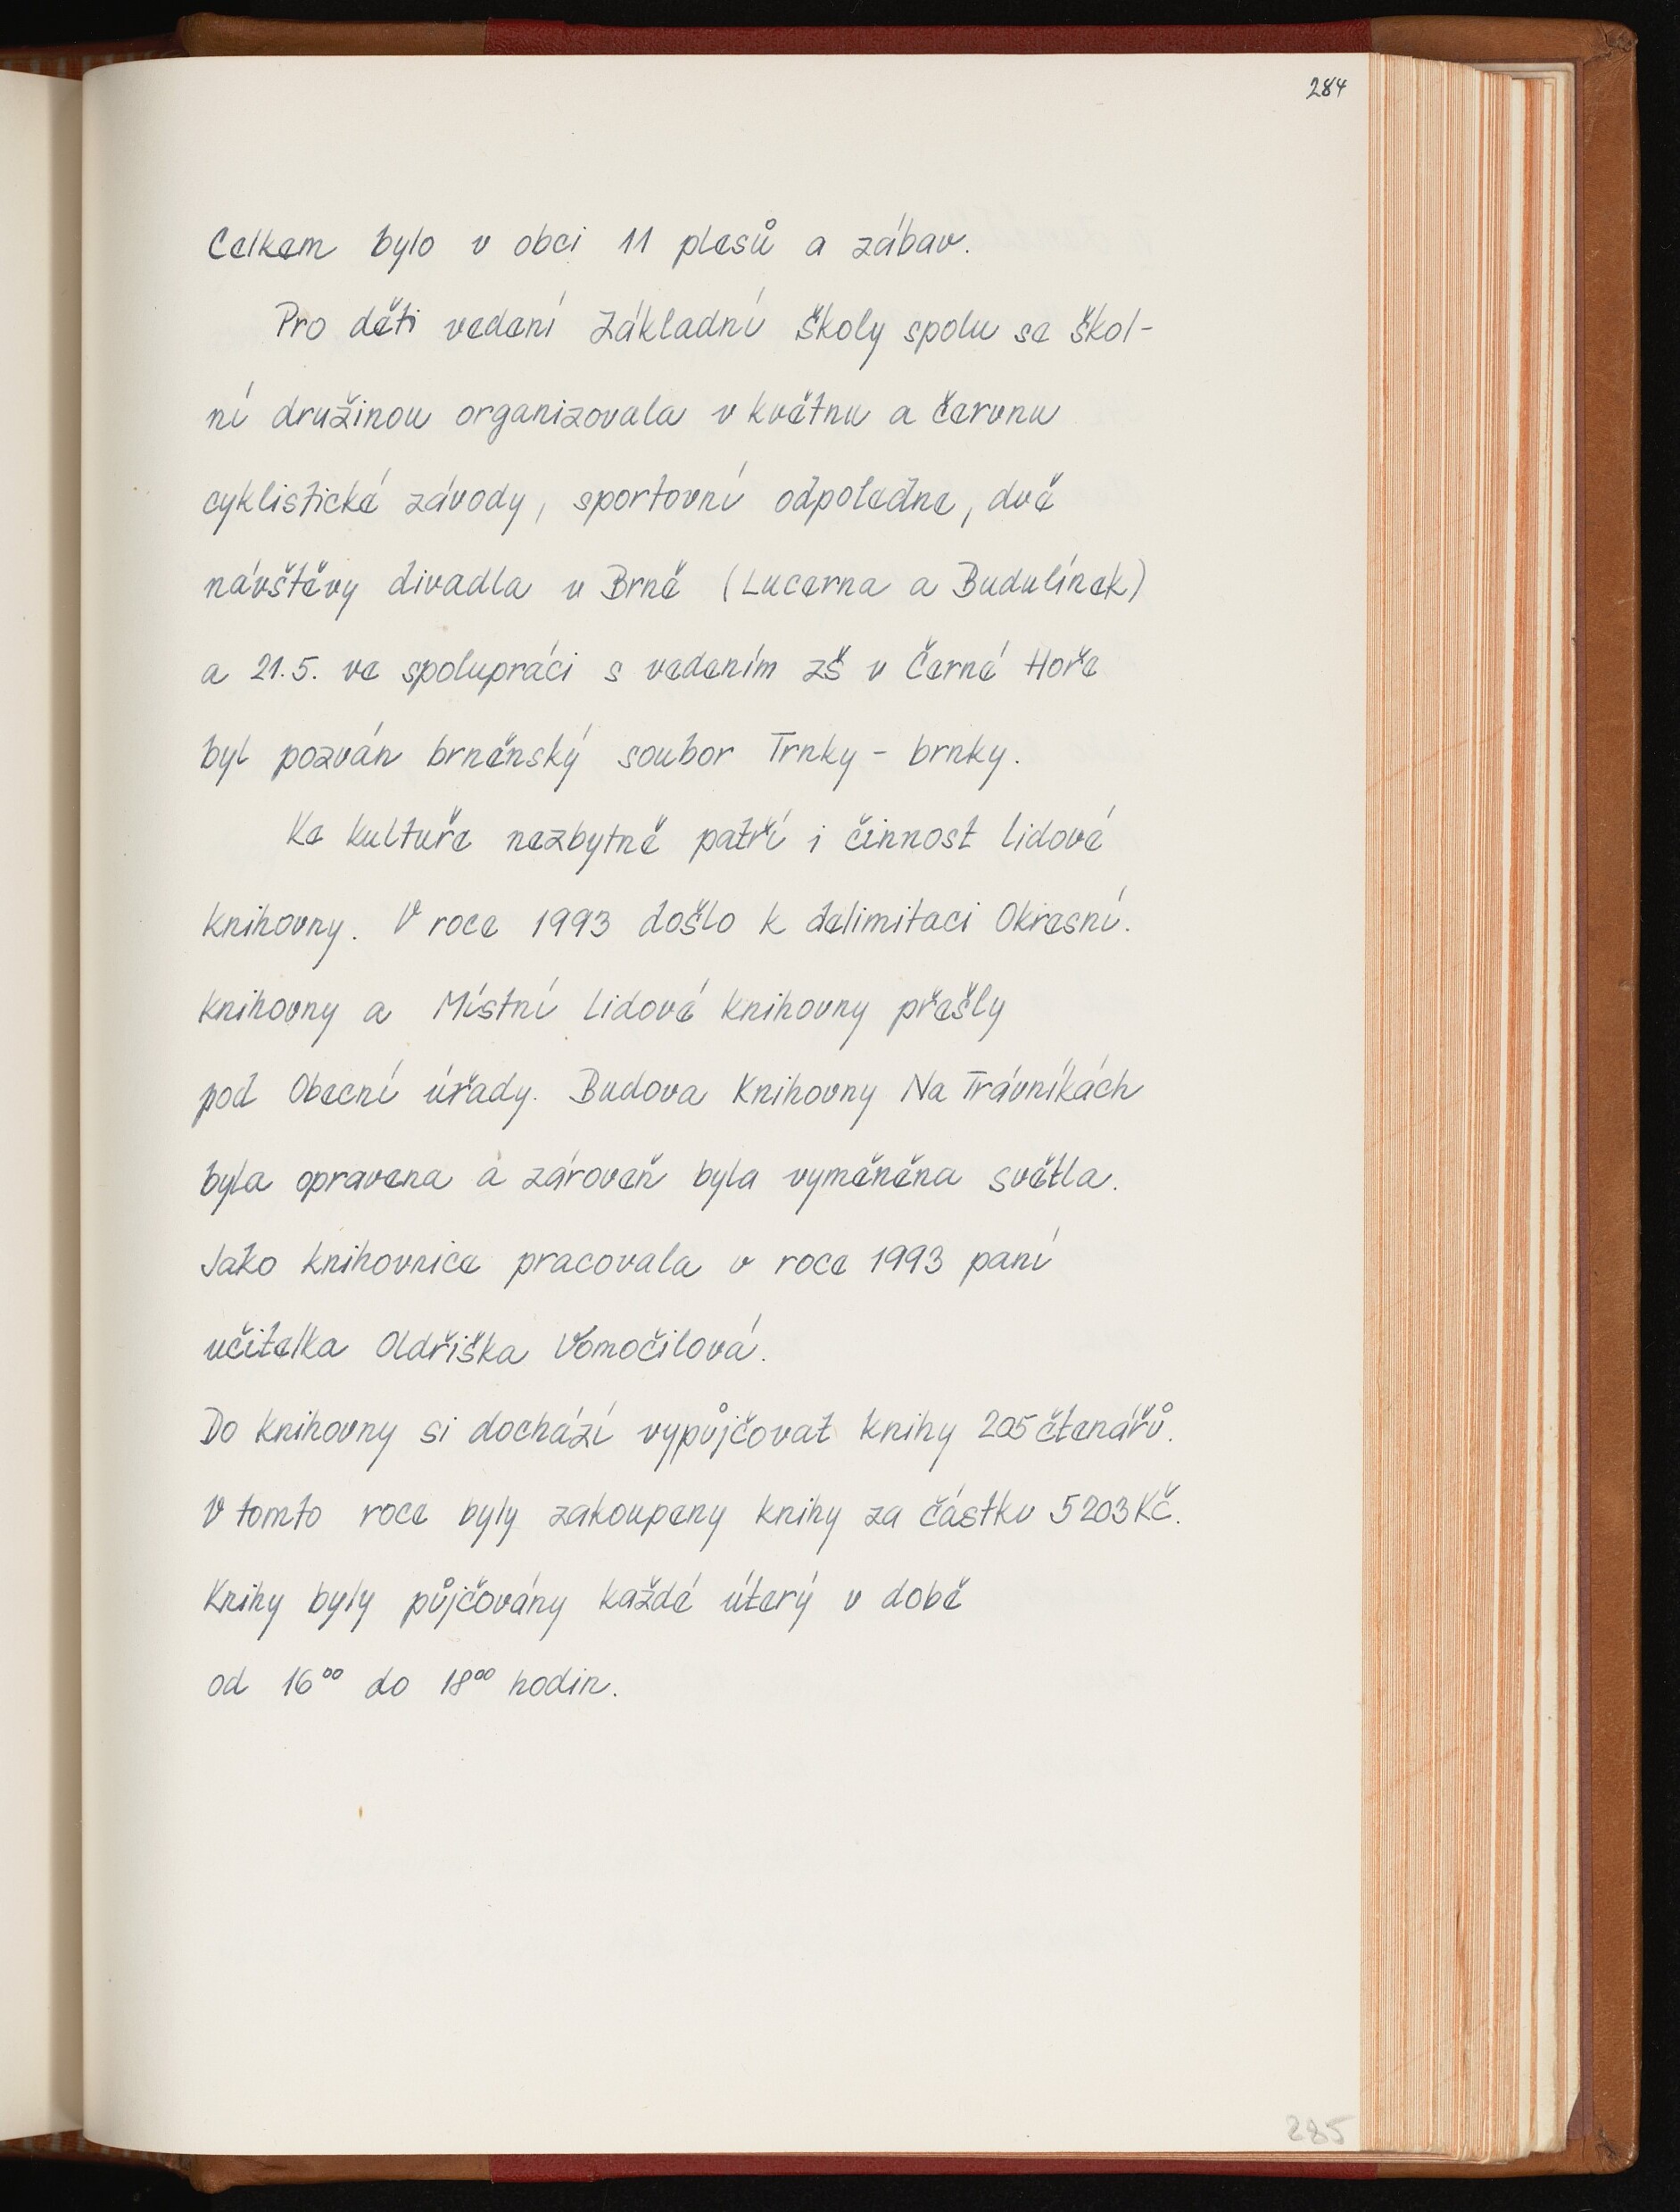 284
Celkem bylo v obci 11 plesů a zábav.
Pro děti vedení Základní školy spolu se škol-
ní družinou organizovala v květnu a červnu
cyklistické závody, sportovní odpoledne, dvě
návštěvy divadla v Brně (Lucerna a Budulínek)
a 21.5. ve spolupráci s vedením ZŠ v Černé Hoře
byl pozván brněnský soubor Trnky - brnky.
Ke kultuře nezbytně patří i činnost lidové
knihovny. V roce 1993 došlo k delimitaci Okresní.
knihovny a Místní Lidové knihovny přešly
pod Obecní úřady. Budova Knihovny Na Trávníkách
byla opravena a zároveň byla vyměněna světla.
Jako knihovnice pracovala v roce 1993 paní
učitelka Oldřiška Vomočilová.
Do knihovny si dochází vypůjčovat knihy 205 čtenářů.
V tomto roce byly zakoupeny knihy za částku 5203 Kč.
Knihy byly půjčovány každé úterý v době
od 16⁰⁰ do 18⁰⁰ hodin.
285